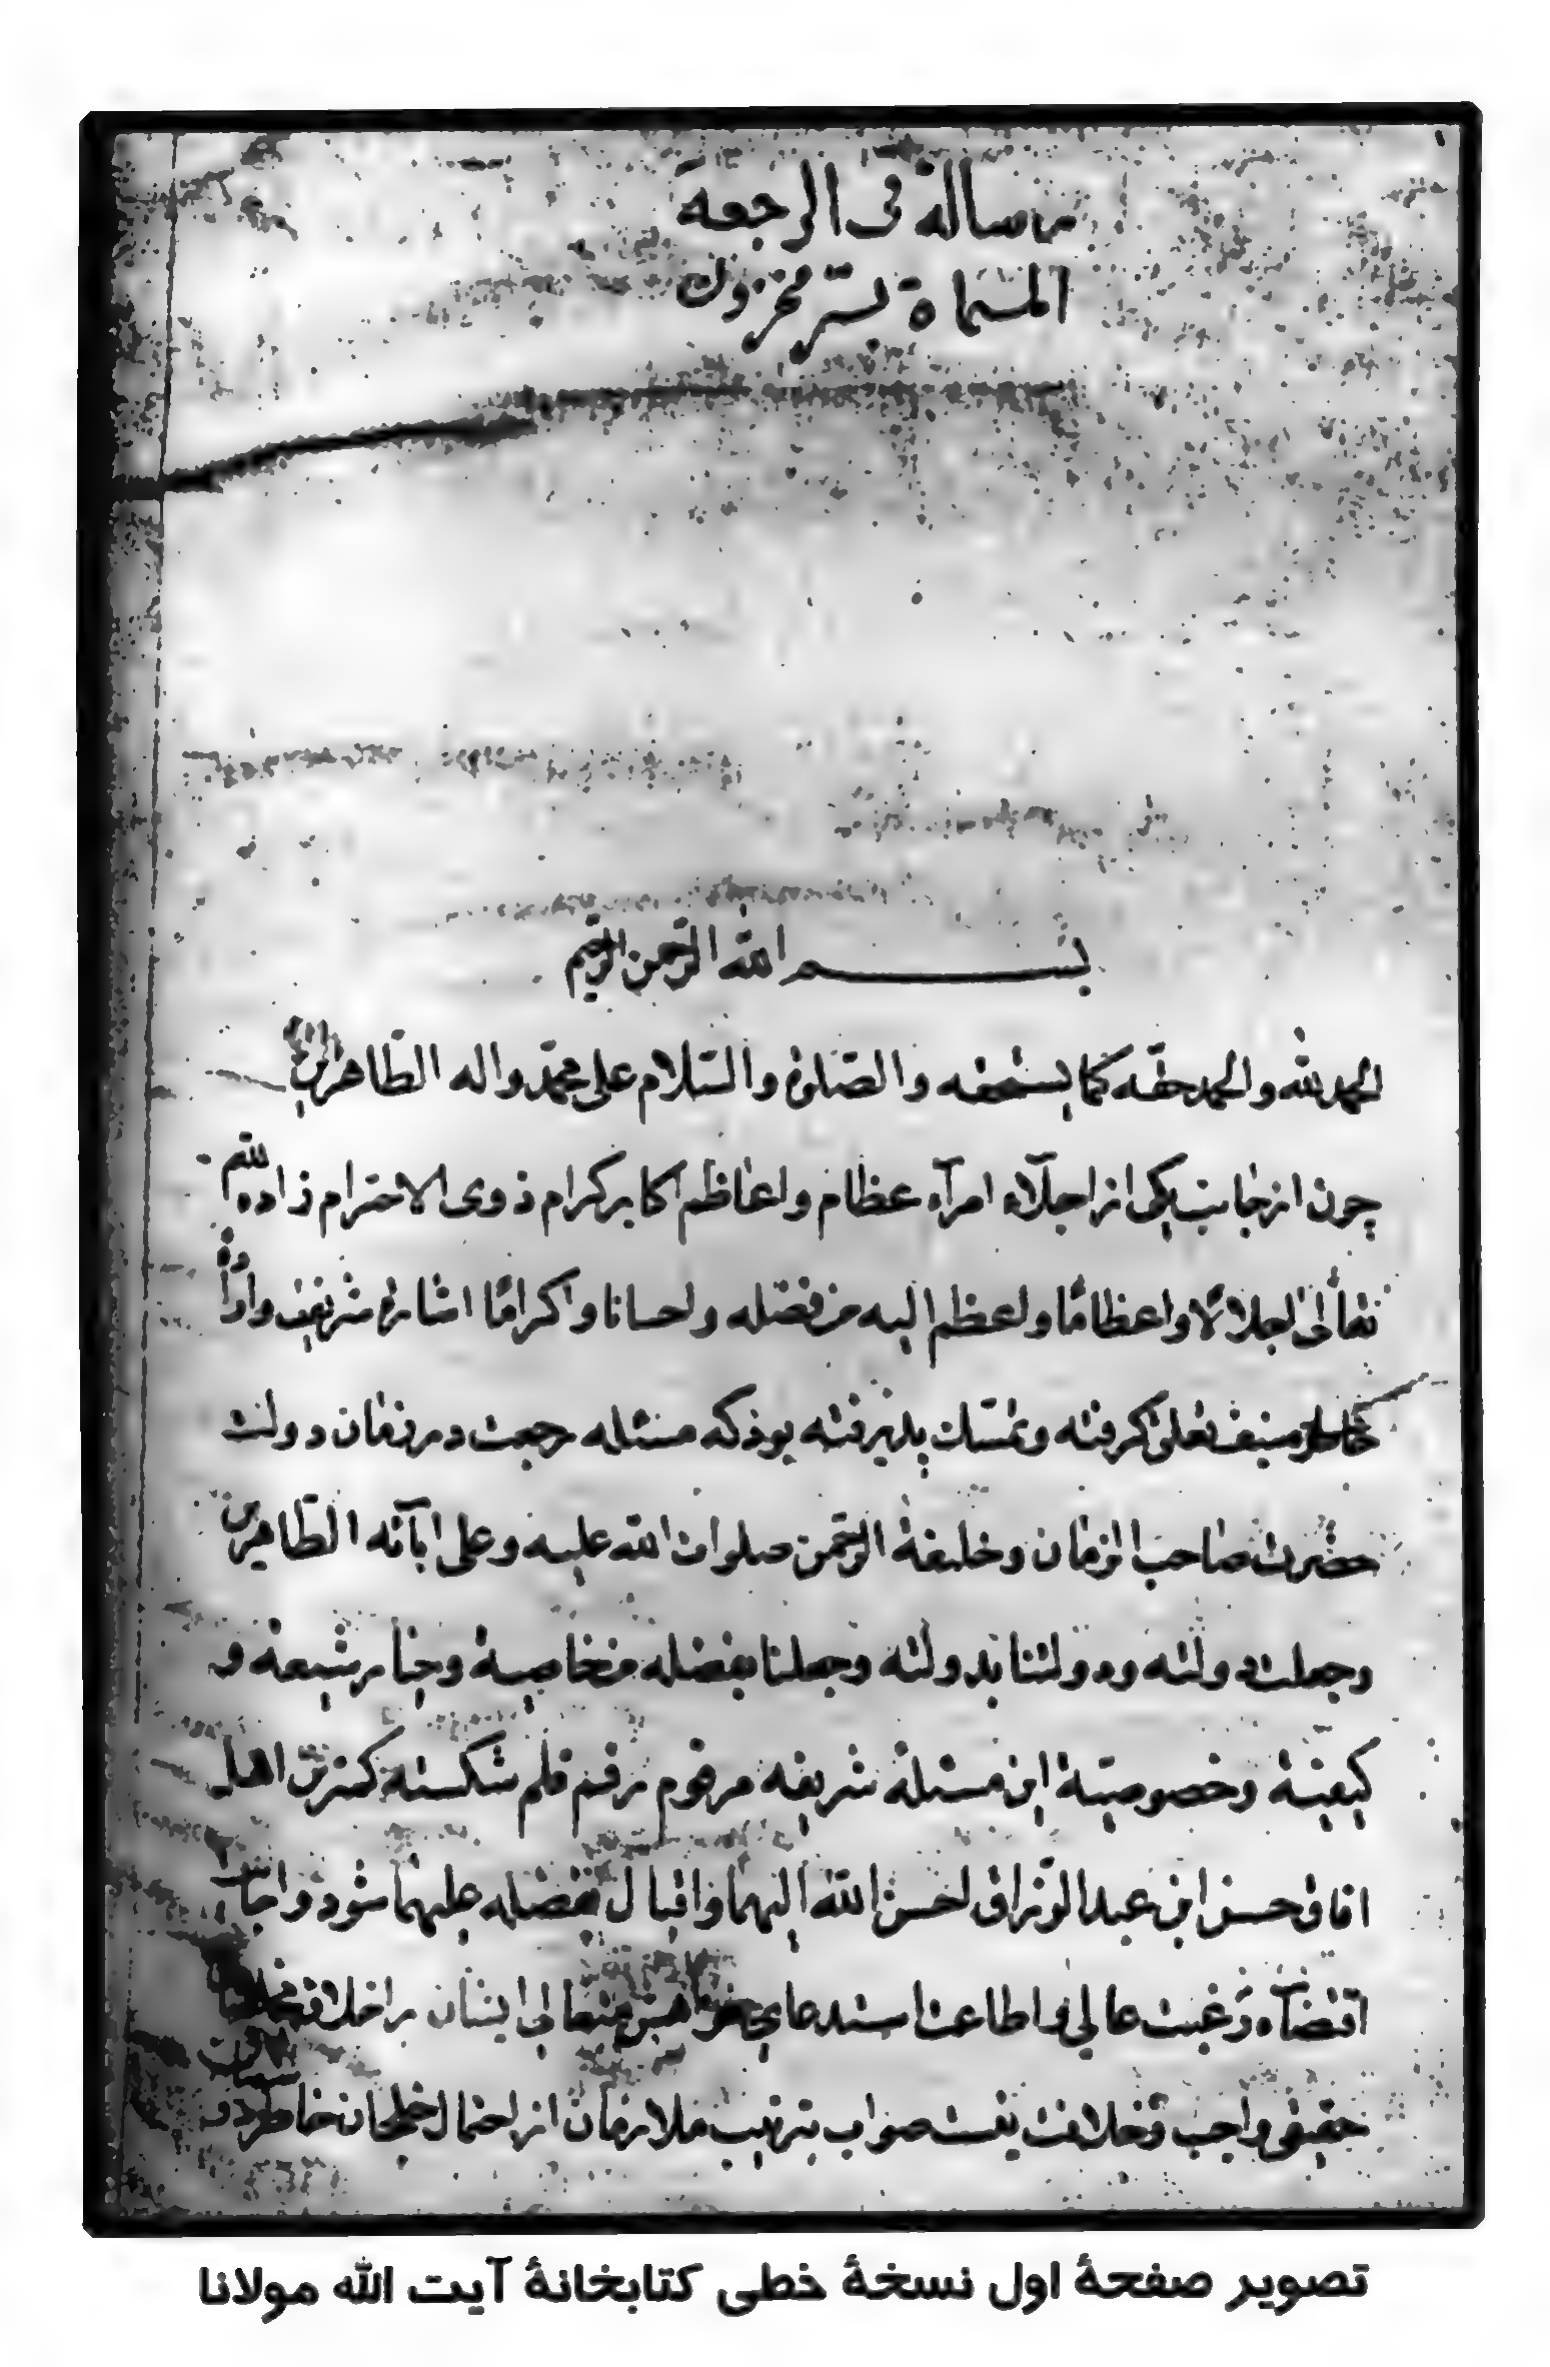 رسالة فی الرجعة
المسماة بسرّ مخزون
بسم الله الرّحمن الرّحیم
الحمد لله والحمد حقّه کما یستحقه والصّلوة والسّلام علی محمّد واله الطّاهرین
چون از جانب یکی از اجلّاء امرآء عظام واعاظم اکابر کرام ذوی الاحترام زاده الله
تعالی اجلالًا واعظامًا واعظم الیه من فضله واحسانا واکرامًا اشارۀ شریف وارادۀ
خاطر منیف تعلق گرفته وتمسّک پذیرفته بوذ که مسئله رجعت در زمان دولت
حضرت صاحب الزمان وخلیفة الرّحمن صلوات الله علیه وعلی ابآئه الطّاهرین
وجعلت دولته ودولتنا بدولته وجعلنا بفضله من خاصیة وخیار شیعة و
کیفیّة وخصوصیّة این مسئلۀ شریفه مرقوم رقم قلم شکسته کمترین اهل
افاق حسن ابن عبدالرّزاق احسن الله الیهما واقبال بفضله علیهما شود واجابت
اقتضآء رغبت عالی واطاعت استدعای متعالی ایشان بر اخلاق
حقیقی واجب وخلافت صواب بترتیب ملازمان از احتمال خلجان خاطر
تصویر صفحۀ اول نسخۀ خطی کتابخانۀ آیت الله مولانا